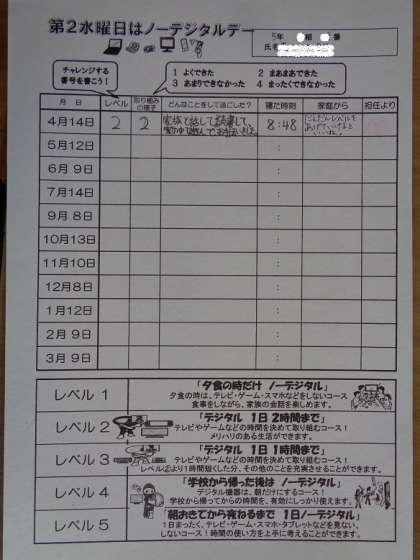 第2水曜日はノーデジタルデー
5年 組 番
氏名
チャレンジする
番号を書こう!
1 よくできた 2 まあまあできた
3 あまりできなかった 4 まったくできなかった
月 日 レベル 取り組み の様子 どんなことをして過ごした? 寝た時刻 家庭から 担任より
4月14日 2 2 家族と話して、読書して、 8:48 だんだんレベルを
あげていけると
いいね。
5月12日 :
6月 9日 :
7月14日 :
9月 8日 :
10月13日 :
11月10日 :
12月8日 :
1月12日 :
2月 9日 :
3月 9日 :
レベル 1 「夕食の時だけ ノーデジタル」
夕食の時は、テレビ・ゲーム・スマホなどをしないコース
食事をしながら、家族の会話を楽しめます。
レベル 2 「デジタル 1日 2時間まで」
テレビやゲームなどの時間を決めて取り組むコース!
メリハリのある生活ができます。
レベル 3 「デジタル 1日 1時間まで」
テレビやゲームなどの時間を決めて取り組むコース!
レベル②より1時間短くした分、その他のことを充実させることができます。
レベル 4 「学校から帰った後は ノーデジタル」
デジタル機器は、朝だけにするコース!
学校から帰ってからの時間を、有効にしっかり使えます。
レベル 5 「朝おきてから夜ねるまで 1日ノーデジタル」
1日まったく、テレビ・ゲーム・スマホ・タブレットなどを見ない、
しないコース!時間の使い方を上手に考えることができます。